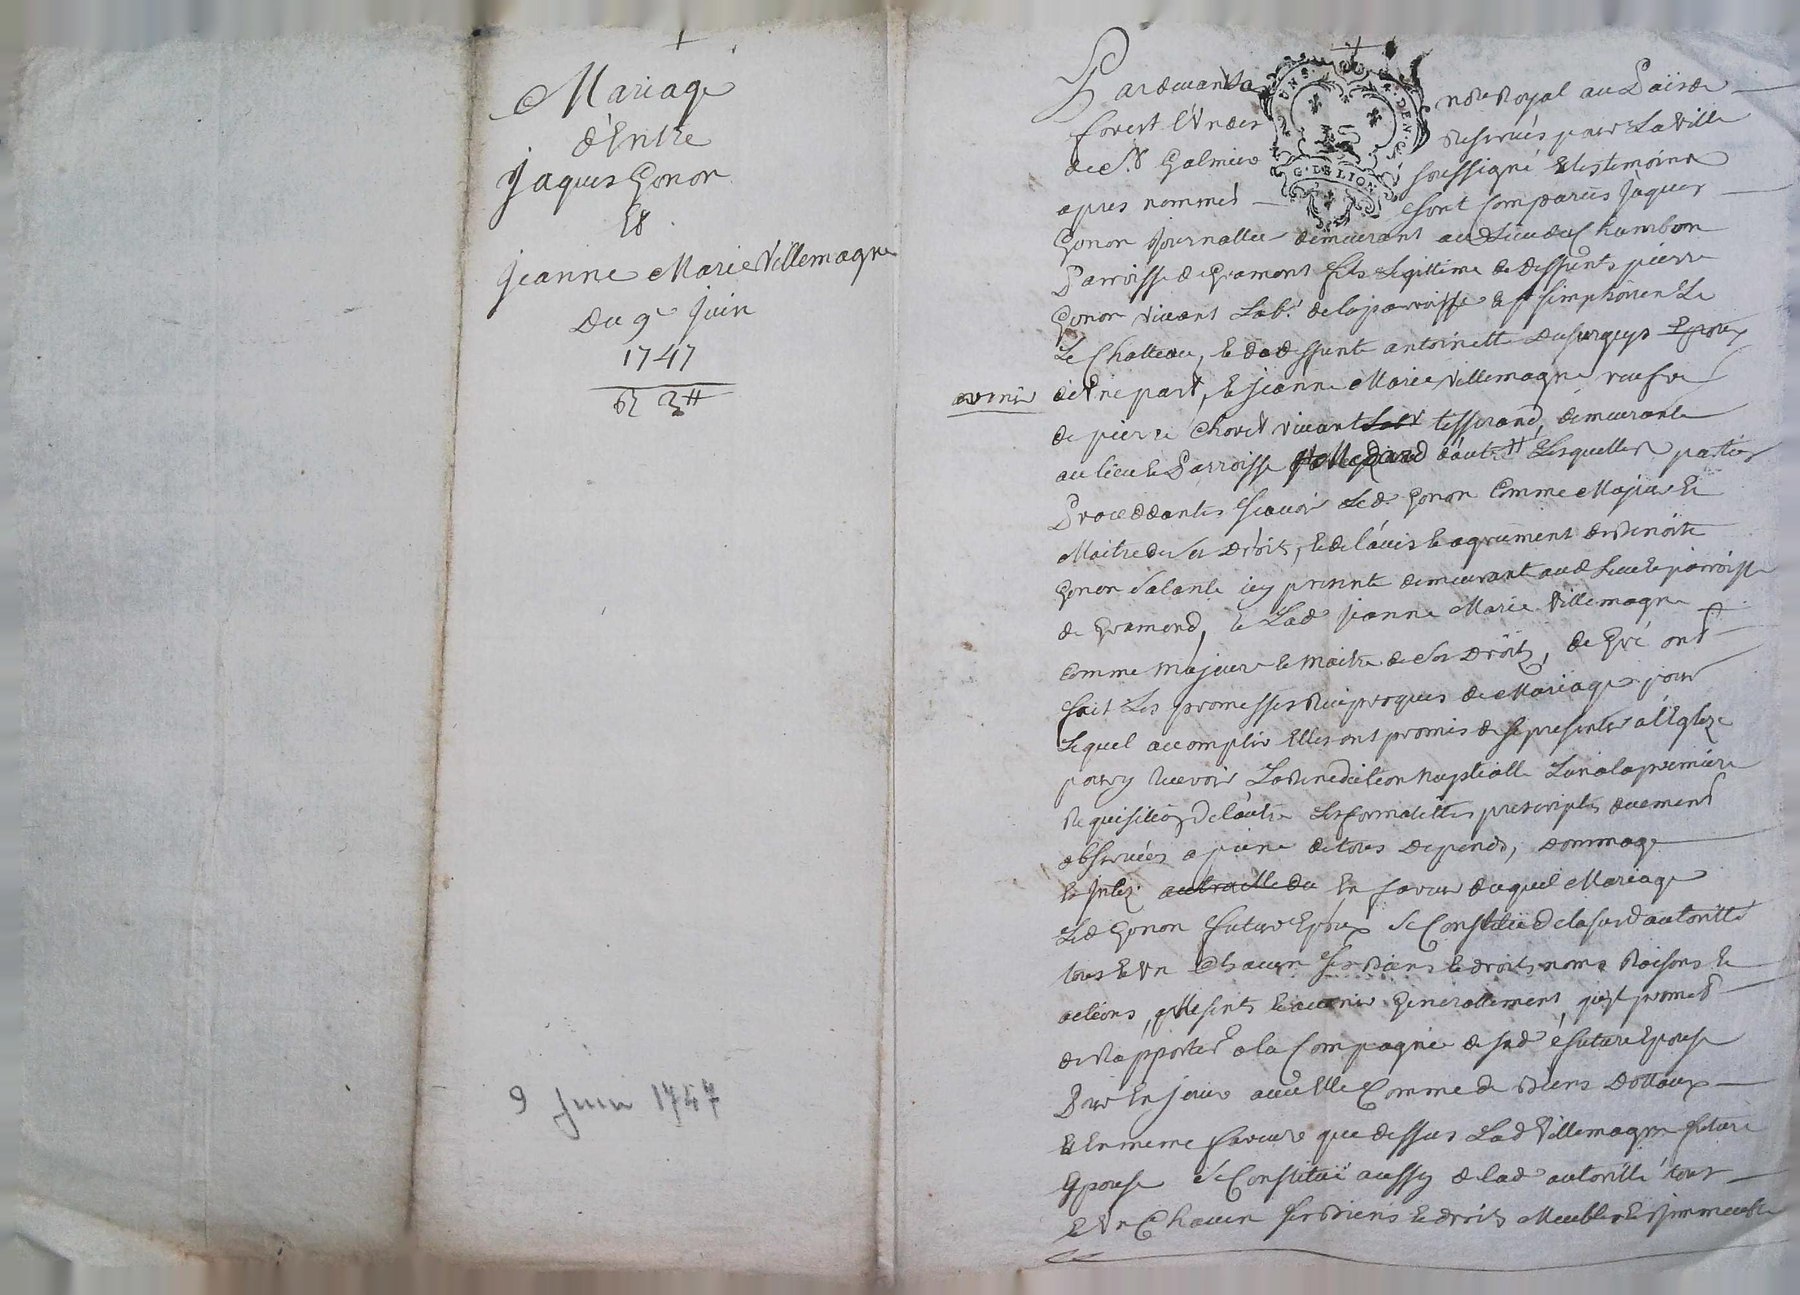 Mariage
d'Entre
Jaques Gonon
Et
Jeanne Marie Villemagne
Du 9e Juin
1747
9 Juin 1747
Pardevant le notre Royal au Païs de
forest L'Un des Reservés pour La Ville
de St Galmier soussigné et les temoins
apres nommés sont Comparus Jaques
Gonon Journallier demeurant au Lieu du Chambon
Parroisse de Gramont fils Legittime de deffunts pierre
Gonon vivant Labr de la parroisse de st simphorien Le
Le Chatteau, et de deffunte antoinette Epoux
avenir
d'Une part, et Jeanne Marie Villemagne veufve
de pierre Chovet vivant tisserand, demeurante
au lieu et Parroisse d'autre Lesquelles parties
Proceddantes sçavoir Led Gonon Comme Majeur et
Maitre de ses Droits, et de l'avis et agrement de Benoite
Gonon sa tante icy presente demeurant aud Lieu et parroisse
de Gramond, et Lad Jeanne Marie Villemagne
Comme Majeure et Maitre de ses Droits, de Gré ont
fait Les promesses Reciproques de Mariage pour
Lequel accomplir Elles ont promis de se presenter a l'Eglize
pour y recevoir La Benediction Nuptialle L'un a la premiere
Requisition de l'autre Les formalittés prescriptes duement
observées a peine de tous depends, dommage
et Intez En faveur duquel Mariage
Led Gonon futur Epoux Se Constitue de la susd autoritté
tous et Un Chacun ses Biens et droits noms Raisons et
actions, presents et avenir Generallement, qu'il promet
de Rapporter a la Compagnie de sad future Epouse
Pour En jouir avec Elle Comme de Biens Dottaux
Et En meme faveur que dessus Lad Villemagne future
Epouse Se Constitue aussy de lad autoritté tous
et Un Chacun ses Biens et droits Meubles et Immeubles